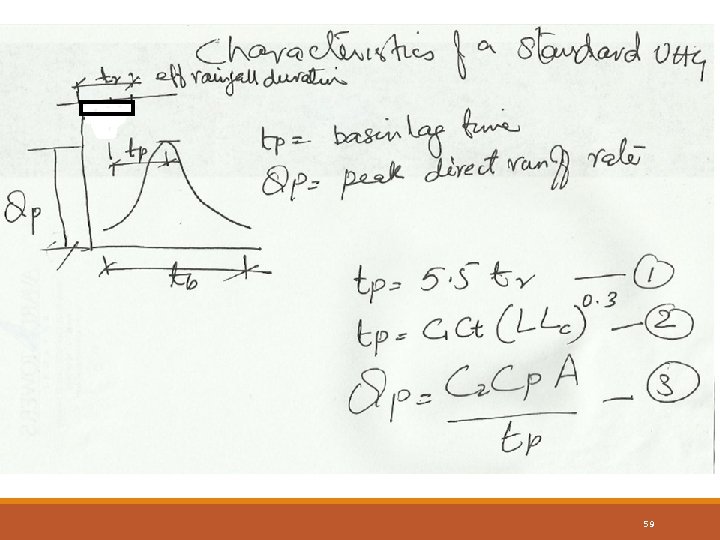 Characteristics of a Standard UHG
tr eff rainfall duration
tp
tp = basin lag time
Qp = peak direct runoff rate
Qp
tb
tp = 5.5 tr — ①
tp = C₁Ct (LLc)^0.3 — ②
Qp = C₂CpA / tp — ③
59